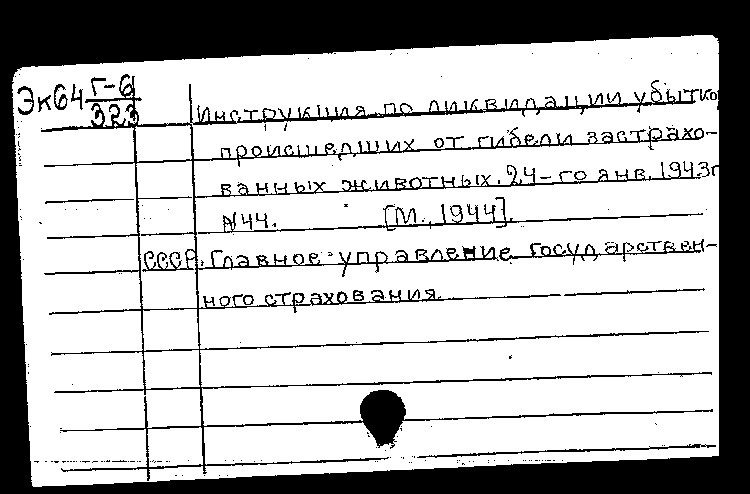 Эк64 Г-6
323
Инструкция по ликвидации убытков,
происшедших от гибели застрахо-
ванных животных. 24-го янв. 1943г.
№44. [М., 1944].
СССР. Главное управление государствен-
ного страхования.